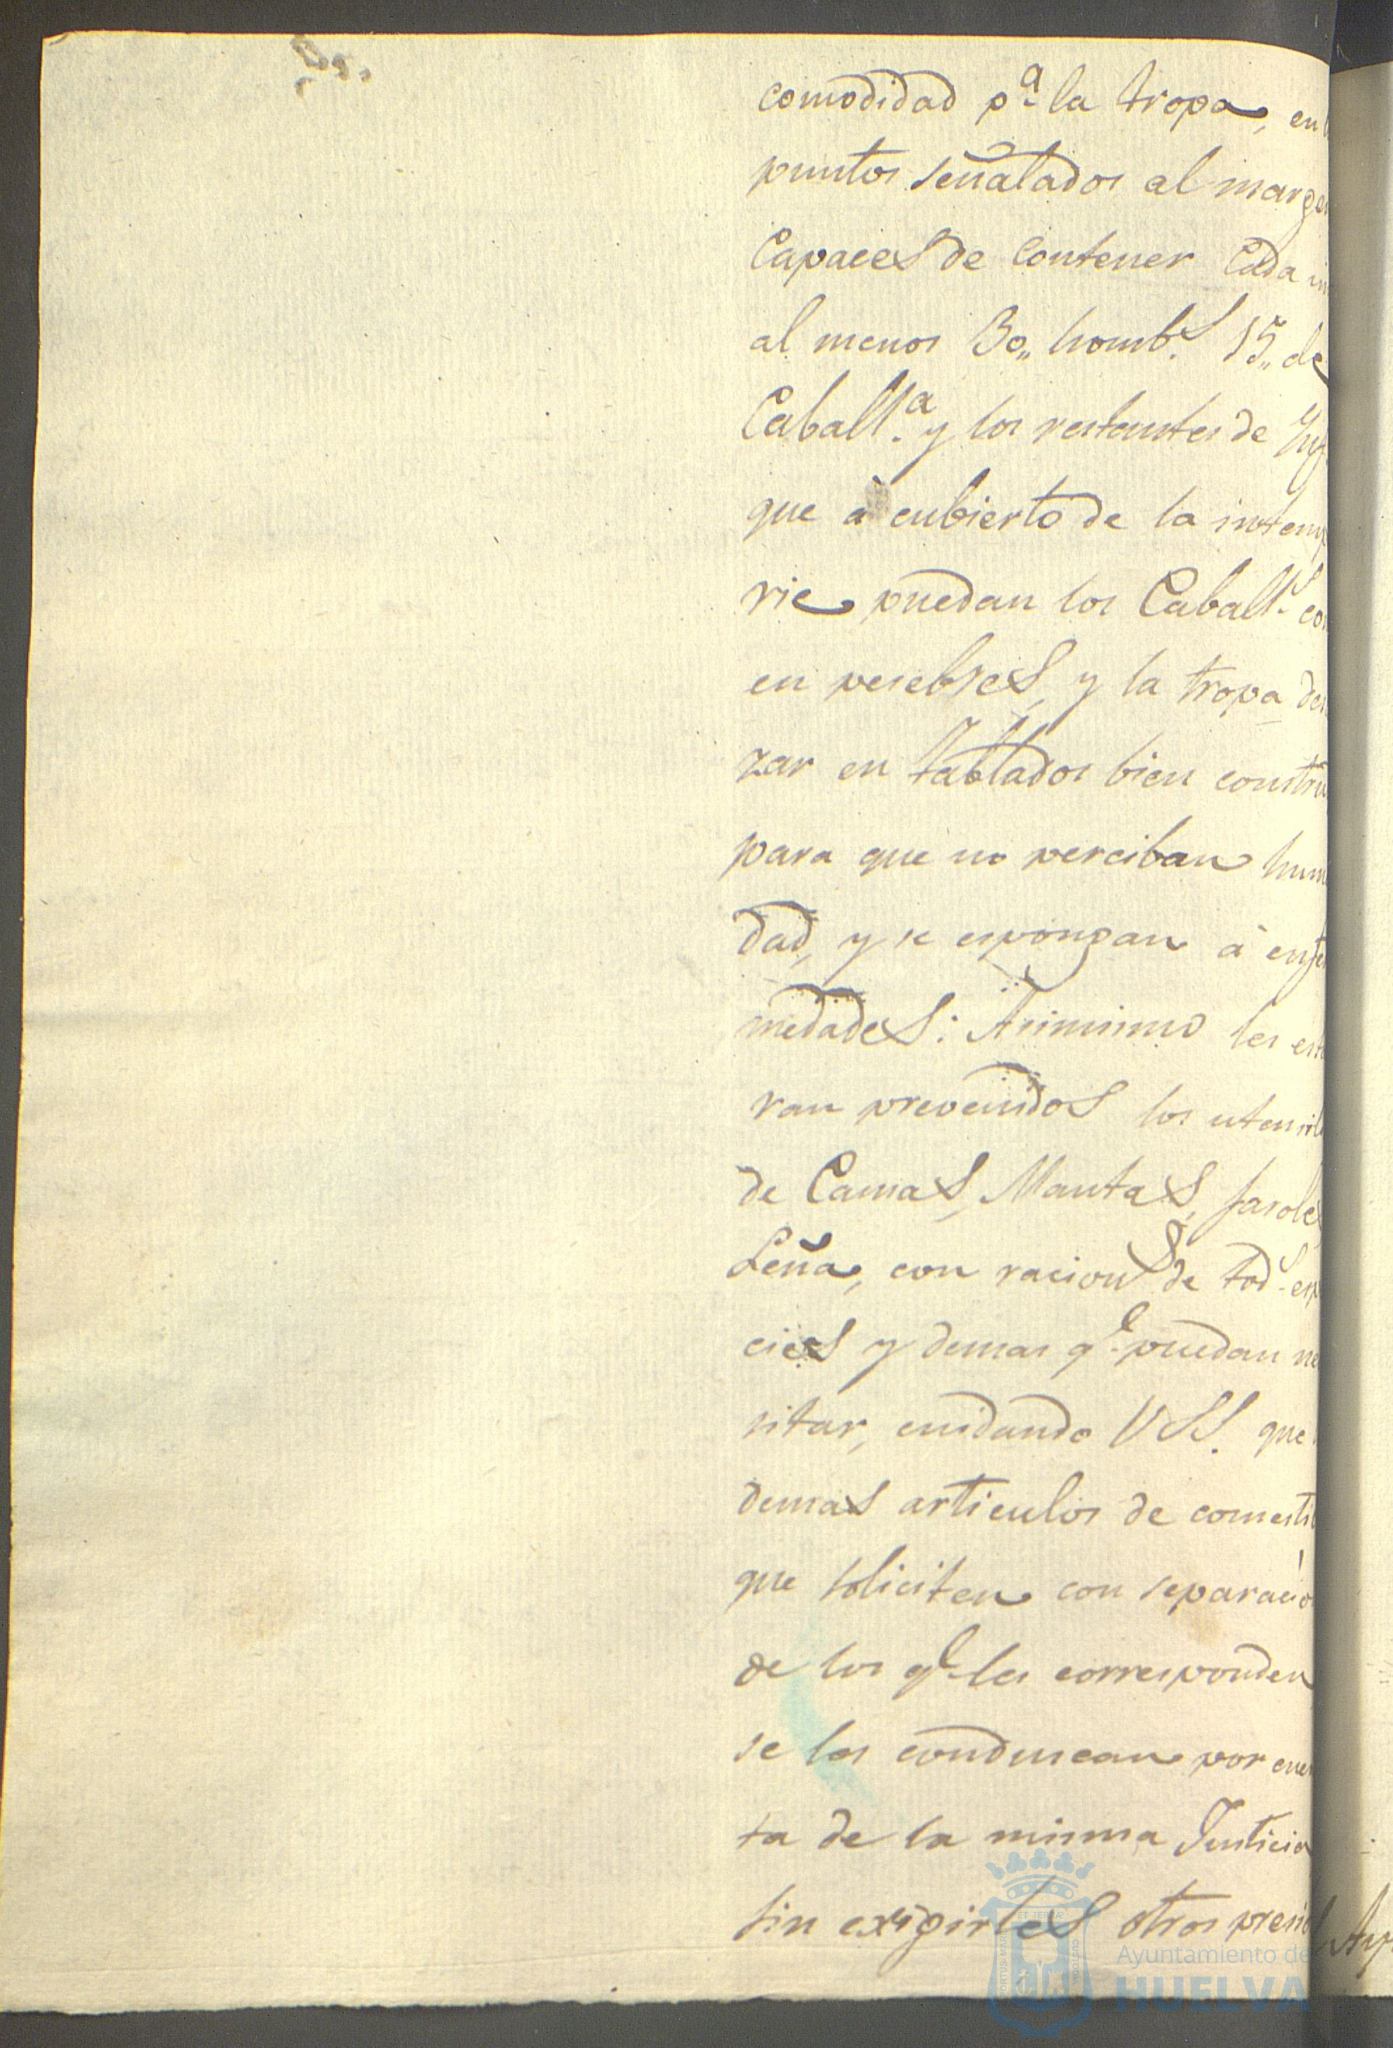 comodidad p.ª la tropa, en
puntos señalados al margen
Capaces de contener Cada
al menos 30,, homb.s 15,, de
Caball.ª y los restantes de Ynf
que à cubierto de la intemp
rie puedan los Caball.s co
en pesebres, y la tropa des
zar en tablados bien constru
para que no perciban hum
dad, y se espongan à enfer
medades: Asimismo les esta
ran prevenidos los utensil
de Camas, Mantas, faroles
Leña, con racion.s de tod.s esp
cies y demas q.e puedan ne
sitar, cuidando VSS. que
demas articulos de comesti
que soliciten con separació
de los q.e les corresponden
se les conduscan por cuen
ta de la misma Justicia
sin exigirles otros preci
Ayuntamiento de
HUELVA